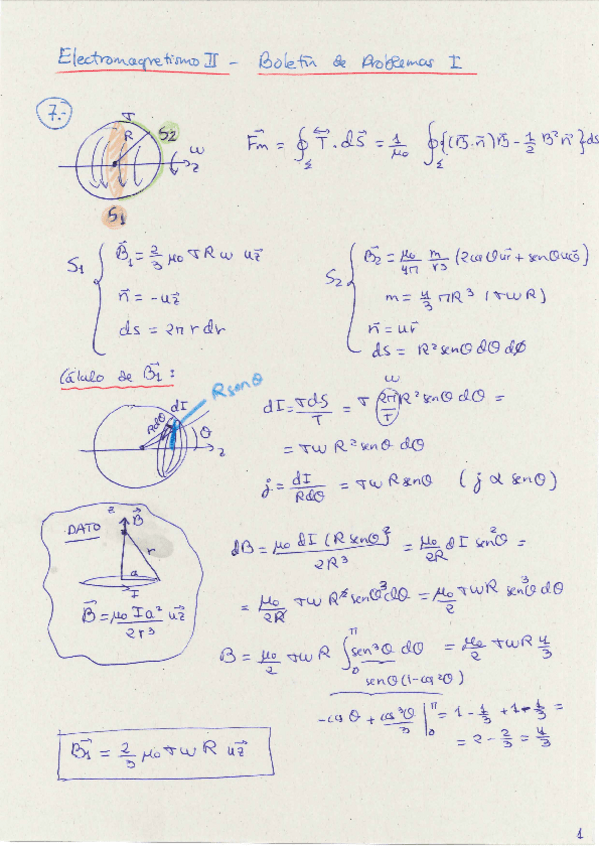 Electromagnetismo II - Boletín de Problemas I
7.-
σ
R
S2
ω
z
S1
F⃗m = ∮_Σ T⃡ · dS⃗ = 1/μ0 ∮_Σ {(B⃗·n⃗)B⃗ - 1/2 B² n⃗} ds
S1 { B⃗1 = 2/3 μ0 σ R ω uz⃗
n⃗ = -uz⃗
ds = 2π r dr
S2 { B⃗2 = μ0/4π m/r³ (2cosθ ur⃗ + senθ uθ⃗)
m = 4/3 π R³ (σωR)
n⃗ = ur⃗
ds = R² senθ dθ dϕ
Cálculo de B⃗1:
dI
R senθ
Rdθ
θ
z
dI = σdS/T = σ (2π/T) R² senθ dθ =
ω
= σω R² senθ dθ
j = dI/Rdθ = σω R senθ (j ∝ senθ)
DATO
z
B⃗
r
a
I
B⃗ = μ0 I a²/2r³ uz⃗
dB = μ0 dI (R senθ)²/2R³ = μ0/2R dI sen²θ =
= μ0/2R σω R² sen³θ dθ = μ0/2 σωR sen³θ dθ
B = μ0/2 σω R ∫_0^π sen³θ dθ = μ0/2 σωR 4/3
senθ(1-cos²θ)
-cosθ + cos³θ/3 |_0^π = 1 - 1/3 + 1 - 1/3 =
= 2 - 2/3 = 4/3
B⃗1 = 2/3 μ0 σ ω R uz⃗
1